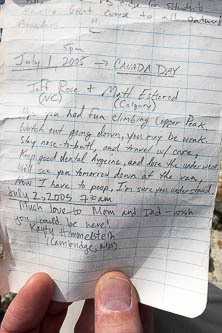 is a Great Course to all outward
Bounders!
5pm
July 1, 2005 → CANADA DAY
Jeff Rose & Matt
(NC) (Calgary)
you had fun climbing Copper Peak,
Watch out going down, you may be weak.
Stay nose-to-butt, and travel w/ care,
Keep good dental hygiene, and lose the underwear.
We'll see you tomorrow down at the van,
Now I have to poop, I'm sure you understand.
July 2, 2005 7:30am
Much love to Mom and Dad - wish
you could be here!
Kayty Himmelstein
(Cambridge, MA)